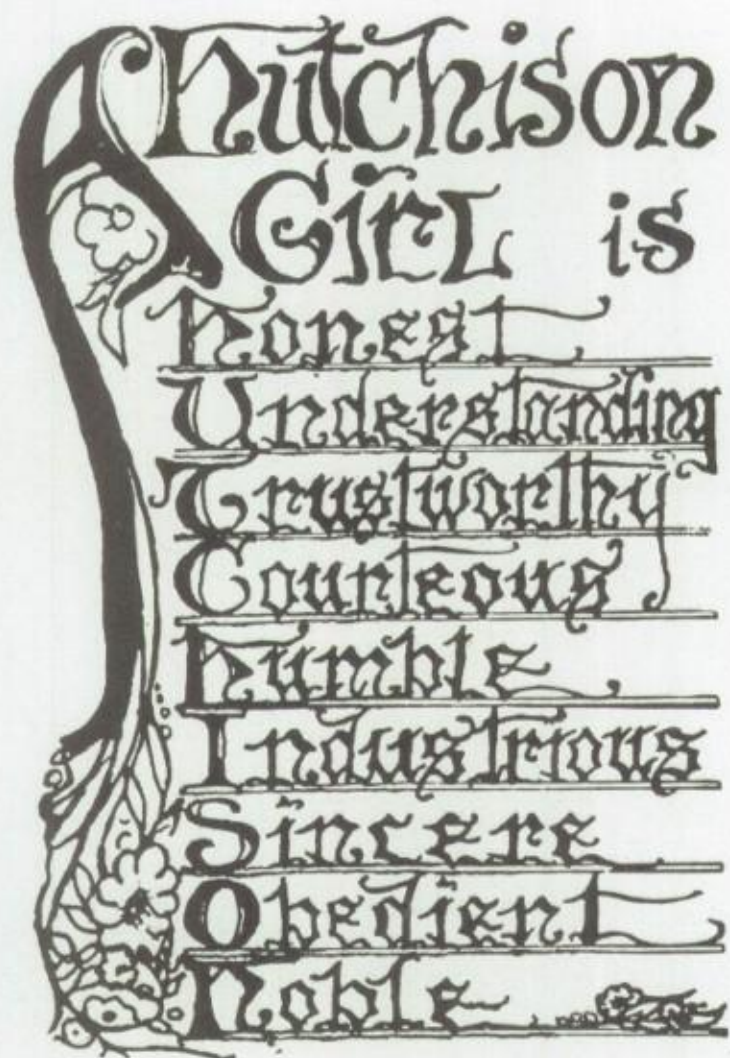 A Hutchison
Girl is
Honest
Understanding
Trustworthy
Courteous
Humble
Industrious
Sincere
Obedient
Noble